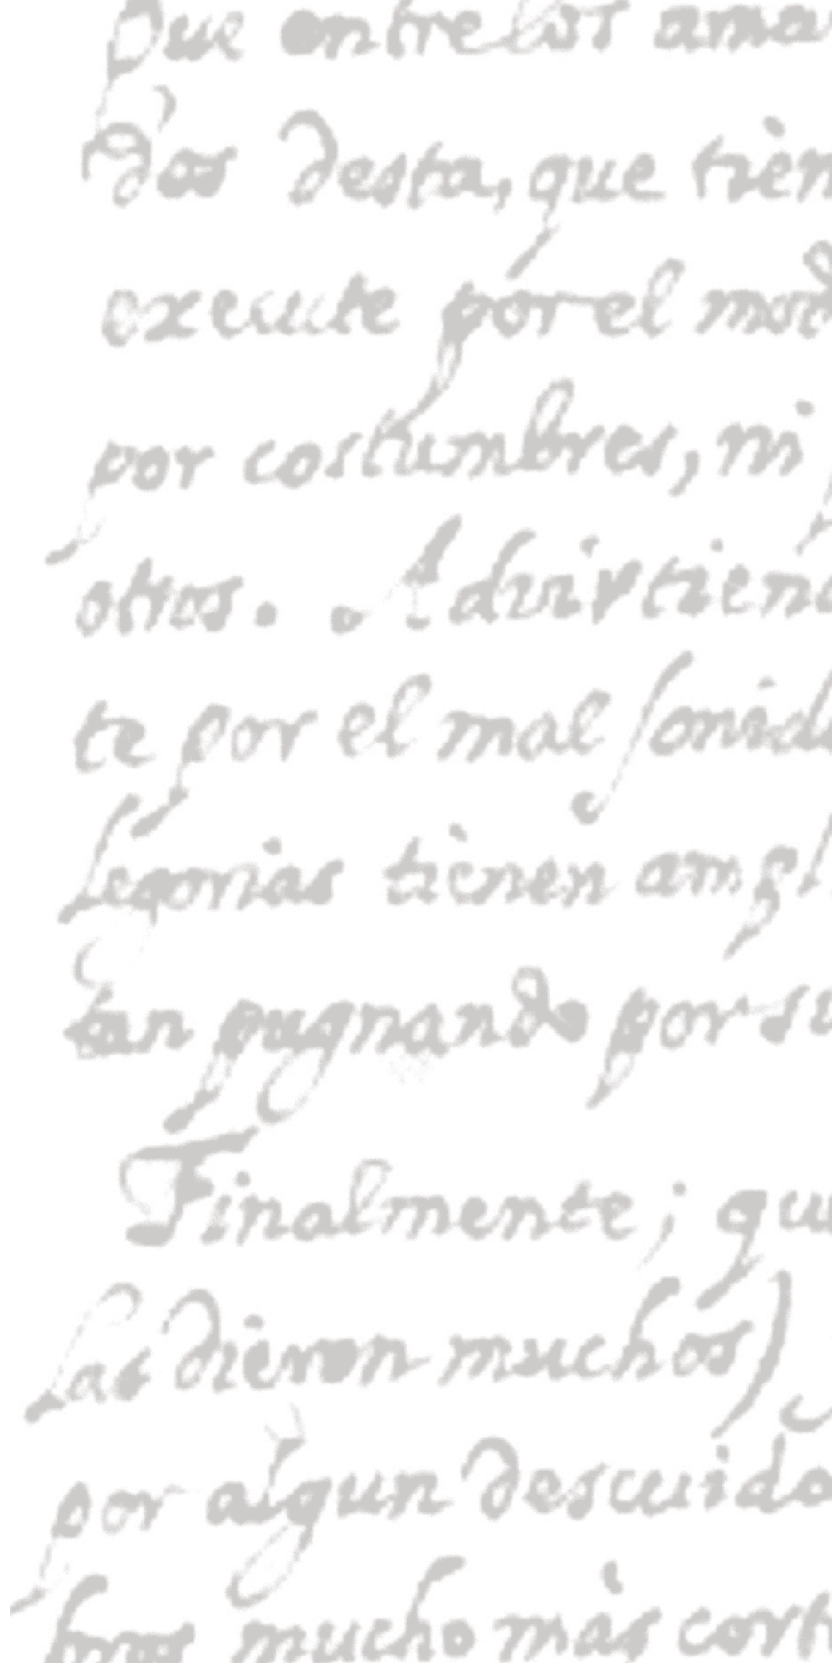 Que entre los ama
dos desta, que tien
execute por el mod
por costumbres, ni
otros. Advirtiend
te por el mal sonid
legorias tienen ampl
tan pugnando por su
Finalmente; qu
las dieron muchos)
por algun descuido
bros mucho màs cort